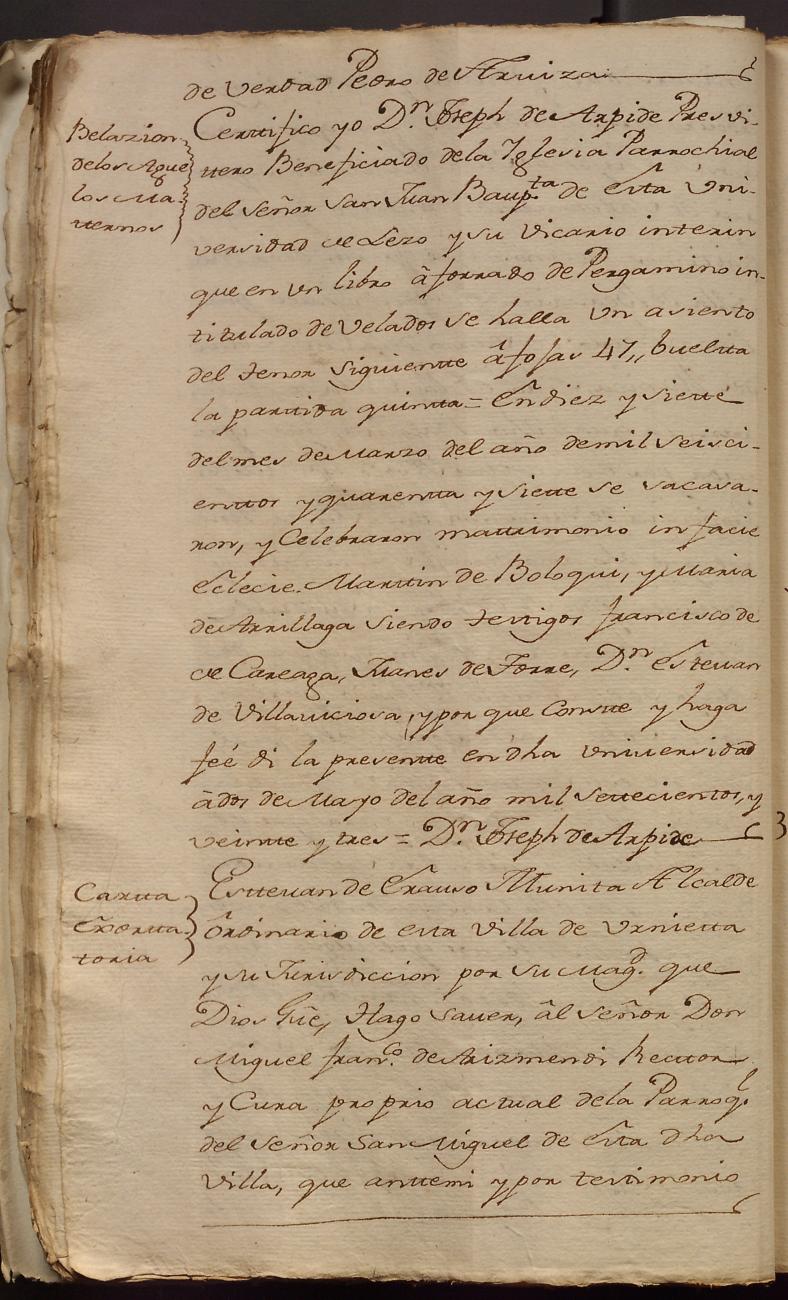 de verdad Pedro de Arviza
Belazion
delos Ague
los Ma-
ternos
Certtifico yo D.n Joseph de Arpide Presvi-
ttero Beneficiado dela Yglesia Parrochial
del Señor San Juan Baup.ta de Esta Vni-
versidad de Lezo y su vicario interin
que en vn libro âforrado de Pergamino in-
titulado de Velados se halla vn asiento
del tenor siguientte â fojas 47,, buelta
la partida quintta = En diez y siette
del mes de Marzo del año demil seisci-
enttos y quarentta y siette se sacasa-
ron, y Celebraron mattrimonio in facie
Eclecie. Marttin de Boloqui, y Maria
de Arrillaga siendo testigos francisco de
de Careaga, Juanes de Torre, D.n Estevan
de Villaviciosa, y por que Constte y haga
feé di la presentte en dha vniversidad
â dos de Mayo del año mil settecientos, y
veintte y tres = D.n Joseph de Arpide
Cartta
Exortta
toria
Esttevan de Erauso Munita Alcalde
ôrdinario de esta Villa de Vrnietta
y su Jurisdiccion por su Mag.d que
Dios Güe, Hago saver, âl Señor Don
Miguel fran.co de Arizmendi Recttor
y Cura proprio actual dela Parroq.l
del Señor San Miguel de Esta dha
Villa, que anttemi y por testimonio